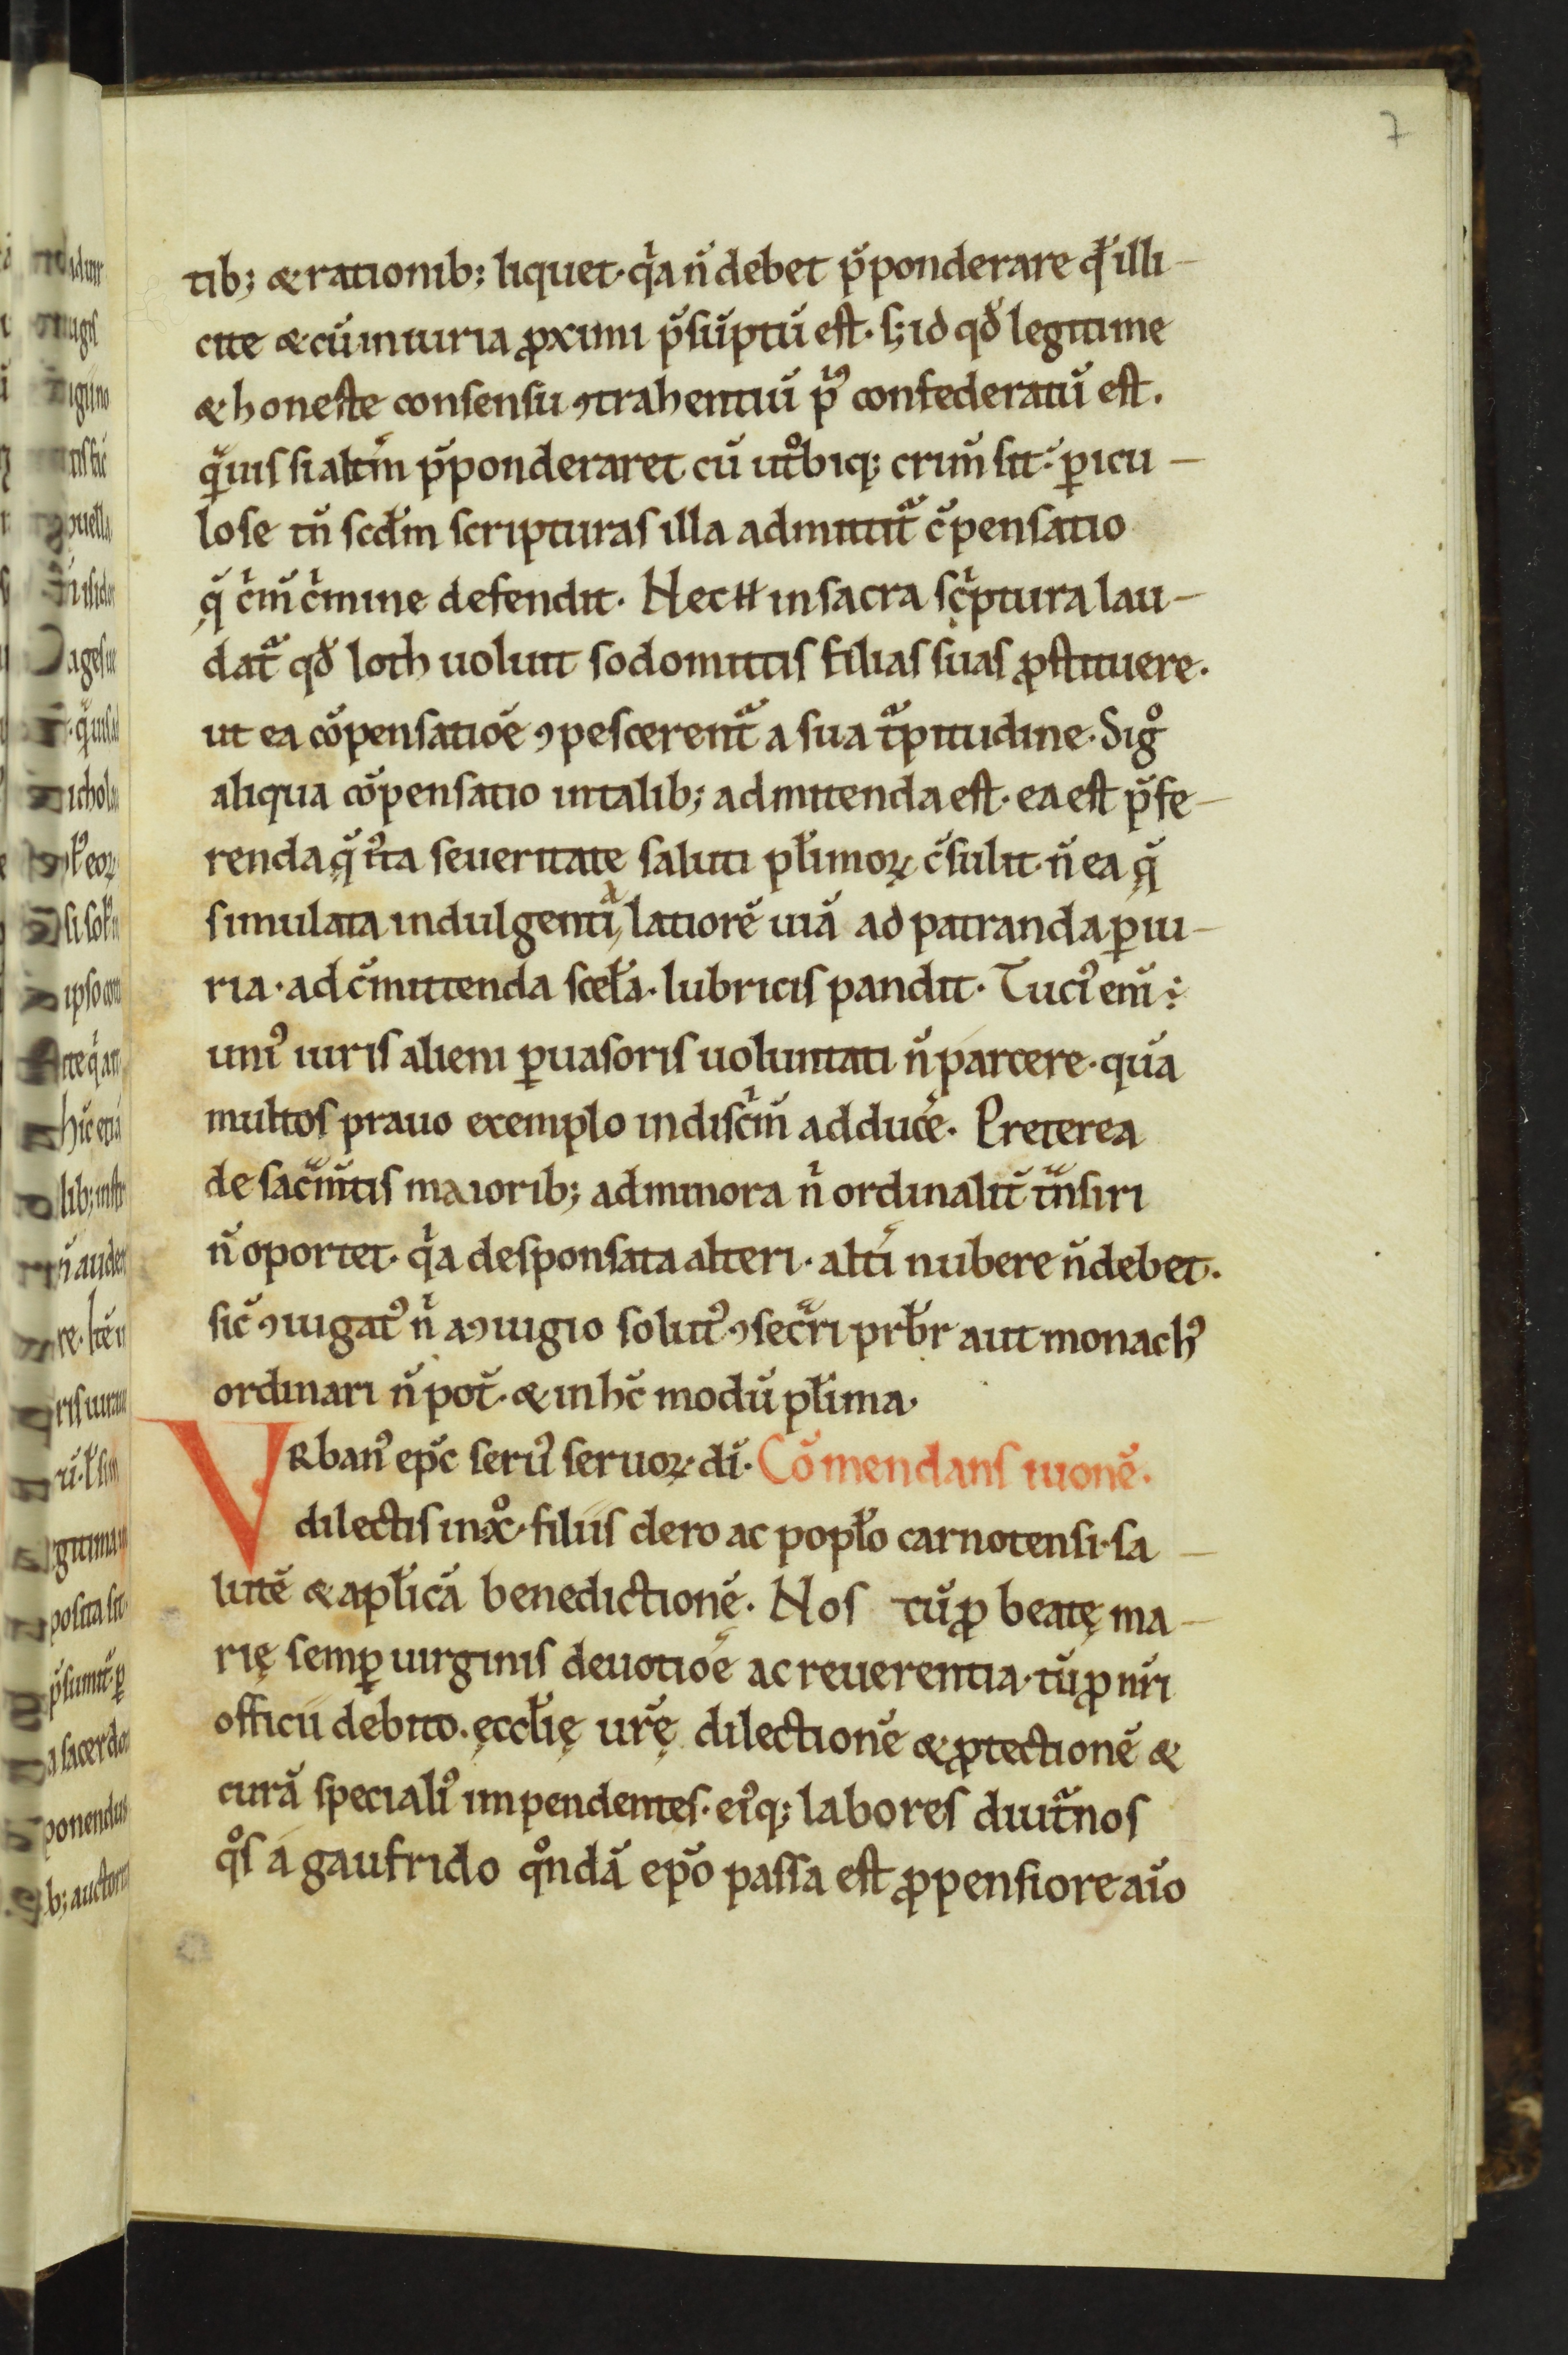 7
tib; & rationib; liquet· qͥa n̄ debet p̄ponderare qd̄ illi-
cite & cū iniuria ꝓximi p̄sūptū est. s; id qđ legitime
& honeste consensu ꝯtrahentiū pͥꝰ confederatū est.
qͣuis si altm̄ p̄ponderaret cū utͦbiq; crim̄ sit· ꝑicu-
lose tn̄ scdm̄ scripturas illa admittitͣ c̄pensatio
q̄ cͥm̄ cͥmine defendit. Nec H in sacra scͥptura lau-
datͣ qđ loth uoluit sodomitis filias suas ꝓstituere.
ut ea cōpensatioē ꝯpescerentͣ a sua tͣpitudine. Sigͦ
aliqua cōpensatio in talib; admittenda est. ea est p̄fe-
renda q̨̄ iͥsta seueritate saluti pl̄imoꝝ c̄sulit. n̄ ea q̨̄
simulata indulgentia latiorē uiā ad patranda ꝑiu-
ria· ad c̄mittenda scel̄a· lubricis pandit. Tuciꝰ enī:
uniꝰ iuris alieni ꝑuasoris uoluntati n̄ parcere. quā
multos prauo exemplo in discͥm̄ adducē. Preterea
de sacͣm̄tis maiorib; ad minora nͥ ordinalit̄ tͣnsiri
n̄ oportet· qͥa desponsata alteri· altī nubere n̄ debet.
sic̄ ꝯiugatꝰ nͥ a ꝯiugio solutꝰ ꝯsecͣri prb̄r aut monachꝰ
ordinari n̄ pot̄. & in hc̄ modū pl̄ima.
VRbanꝰ epc̄ seruꝰ seruoꝝ dī. Cōmendans iuonē.
dilectis in xͦ· filiis clero ac popl̄o carnotensi· sa-
lutē & apl̄icā benedictionē. Nos tū ꝓ beatę ma-
rię semꝑ uirginis deuotioē ac reuerentia· tū ꝓ nr̄i
officii debito. ęccl̄ię ur̄ę dilectionē & ꝓtectionē &
curā specialiꝰ impendentes. eiꝰq; labores diutͣnos
qͦs a gaufrido qͦndā ep̄o passa est ꝓpensiore aīo